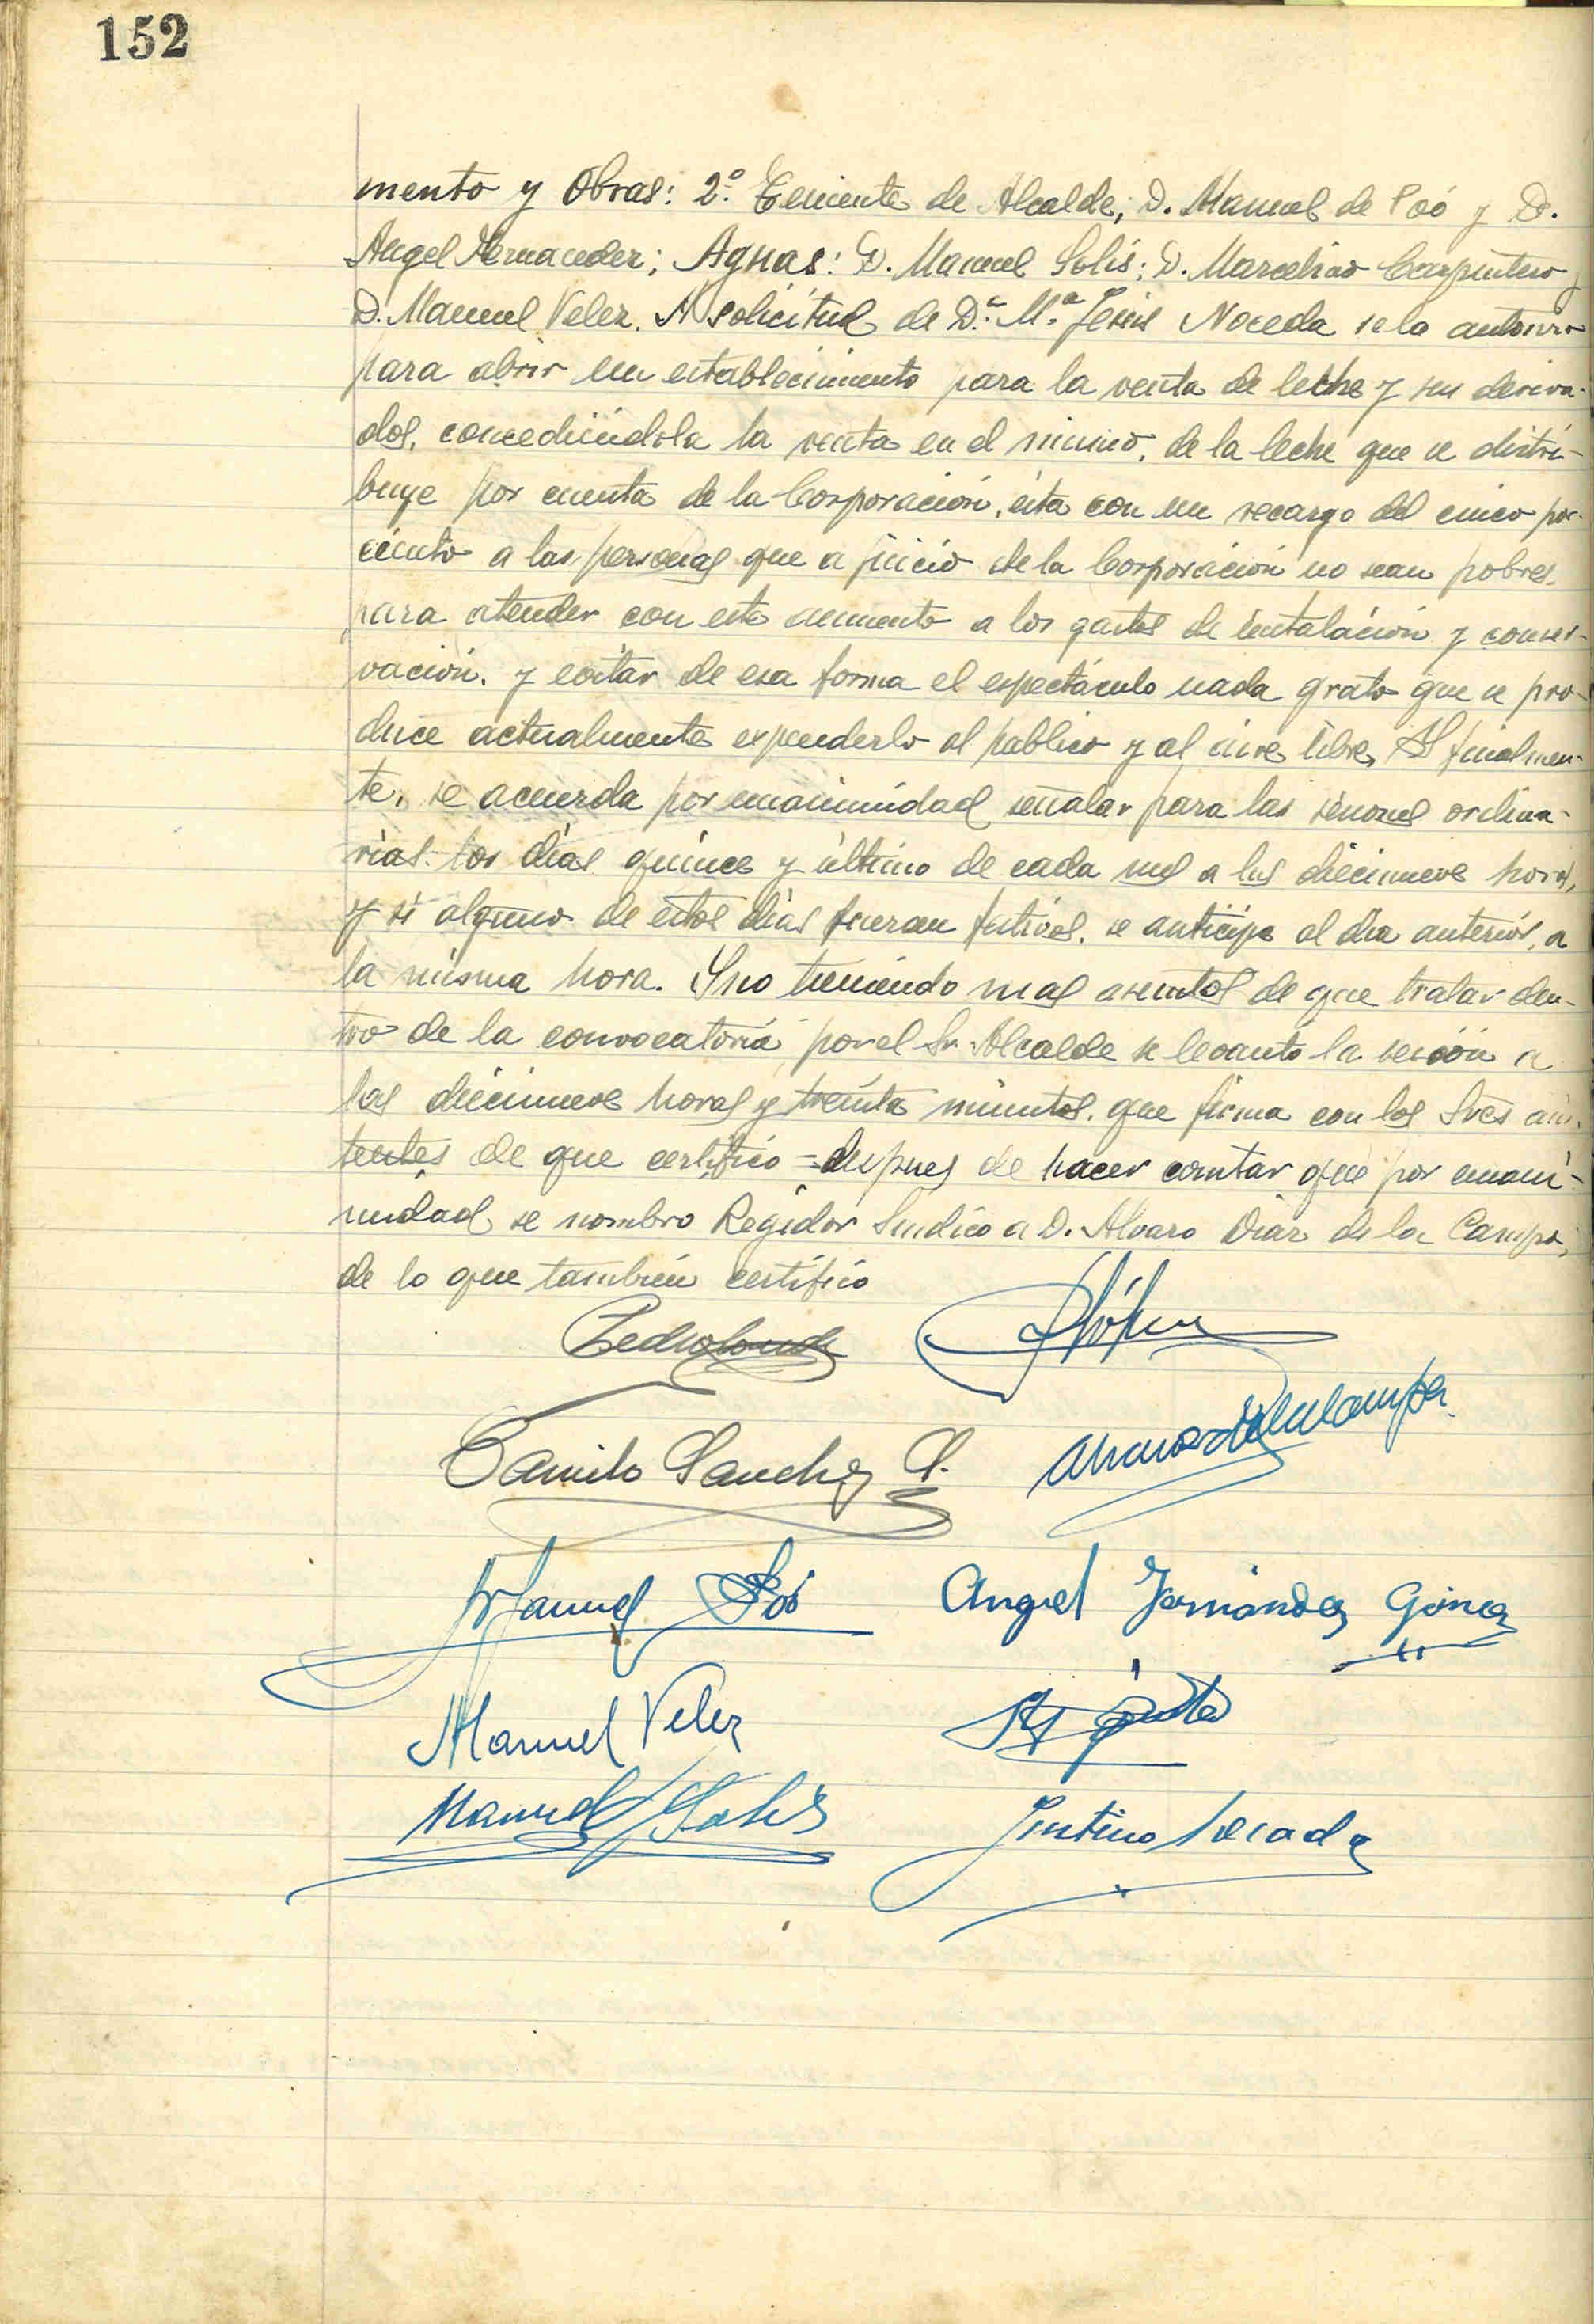 152
mento y Obras: 2º Teniente de Alcalde; D. Manuel de Poó y D.
Angel Hernandez; Aguas: D. Manuel Solis; D. Marcelino Carpintero y
D. Manuel Velez. A solicitud de D.ª M.ª Jesús Noceda se la autorizo
para abrir un establecimiento para la venta de leche y sus deriva-
dos, concediéndola la venta en el mismo, de la leche que se distri-
buye por cuenta de la Corporación, ésta con un recargo del cinco por
ciento a las personas que a juicio de la Corporación no sean pobres
para atender con este aumento a los gastos de instalación y conser-
vación. y evitar de esa forma el espectáculo nada grato que se pro-
duce actualmente expenderlo al publico y al aire libre, Y finalmen-
te, se acuerda por unanimidad señalar para las sesiones ordina-
rias los días quince y último de cada mes a las diecinueve horas,
y si alguno de estos días fueran festivos. se anticipe al día anterior, a
la misma hora. Y no teniendo mas asuntos de que tratar den-
tro de la convocatoria por el Sr. Alcalde se levantó la sesión a
las diecinueve horas y treinta minutos. que firma con los Sres asis-
tentes de que certifico = despues de hacer constar que por unani-
midad se nombro Regidor Sindico a D. Alvaro Diaz de la Campa;
de lo que también certifico
Camilo Sanchez
Alvaro D de la Campa
Manuel Poó
Angel Fernández Gómez
Manuel Velez
Manuel Solis